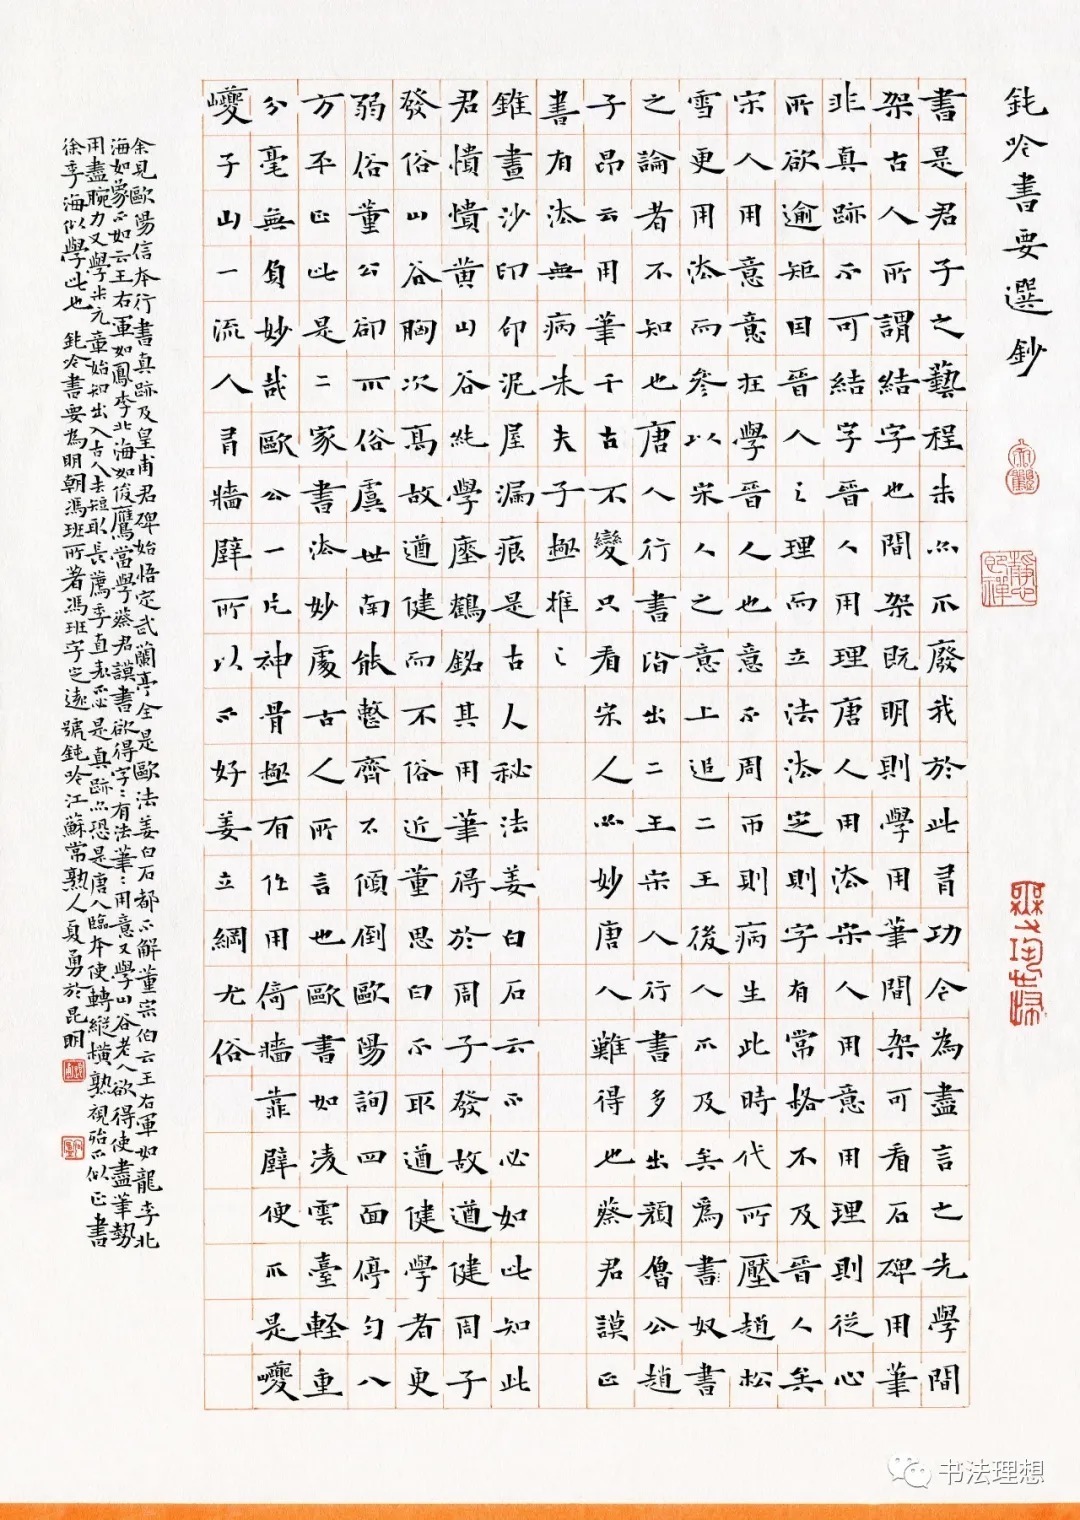 鈍吟書要選鈔
書是君子之藝程朱亦不廢我於此有功今為盡言之先學間
架古人所謂結字也間架既明則學用筆間架可看石碑用筆
非真跡不可結字晉人用理唐人用法宋人用意用理則從心
所欲逾矩因晉人之理而立法法定則字有常格不及晉人矣
宋人用意意在學晉人也意不周帀則病生此時代所壓趙松
雪更用法而參以宋人之意上追二王後人不及矣為書奴書
之論者不知也唐人行書皆出二王宋人行書多出顏魯公趙
子昂云用筆千古不變只看宋人亦妙唐人難得也蔡君謨正
書有法無病朱夫子極推之
錐畫沙印印泥屋漏痕是古人秘法姜白石云不必如此知此
君憒憒黄山谷純學瘞鶴銘其用筆得於周子發故遒健周子
發俗山谷胸次高故遒健而不俗近董思白不取遒健學者更
弱俗董公卻不俗虞世南能整齊不傾倒歐陽詢四面停勻八
方平正此是二家書法妙處古人所言也歐書如凌雲臺輕重
分毫無負妙哉歐公一片神骨極有作用倚牆靠壁便不是巙
巙子山一流人有牆壁所以不好姜立綱尤俗
余見歐陽信本行書真跡及皇甫君碑始悟定武蘭亭全是歐法姜白石都不解董宗伯云王右軍如龍李北
海如象不如云王右軍如鳳李北海如俊鷹當學蔡君謨書欲得字字有法筆筆用意又學山谷老人欲得使盡筆勢
用盡腕力又學米元章始知出入古人去短取長薦季直表不必是真跡亦恐是唐人臨本使轉縱橫熟視殆不似正書
徐季海似學此也 鈍吟書要為明朝馮班所著馮班字定遠號鈍吟江蘇常熟人夏勇於昆明
书法理想